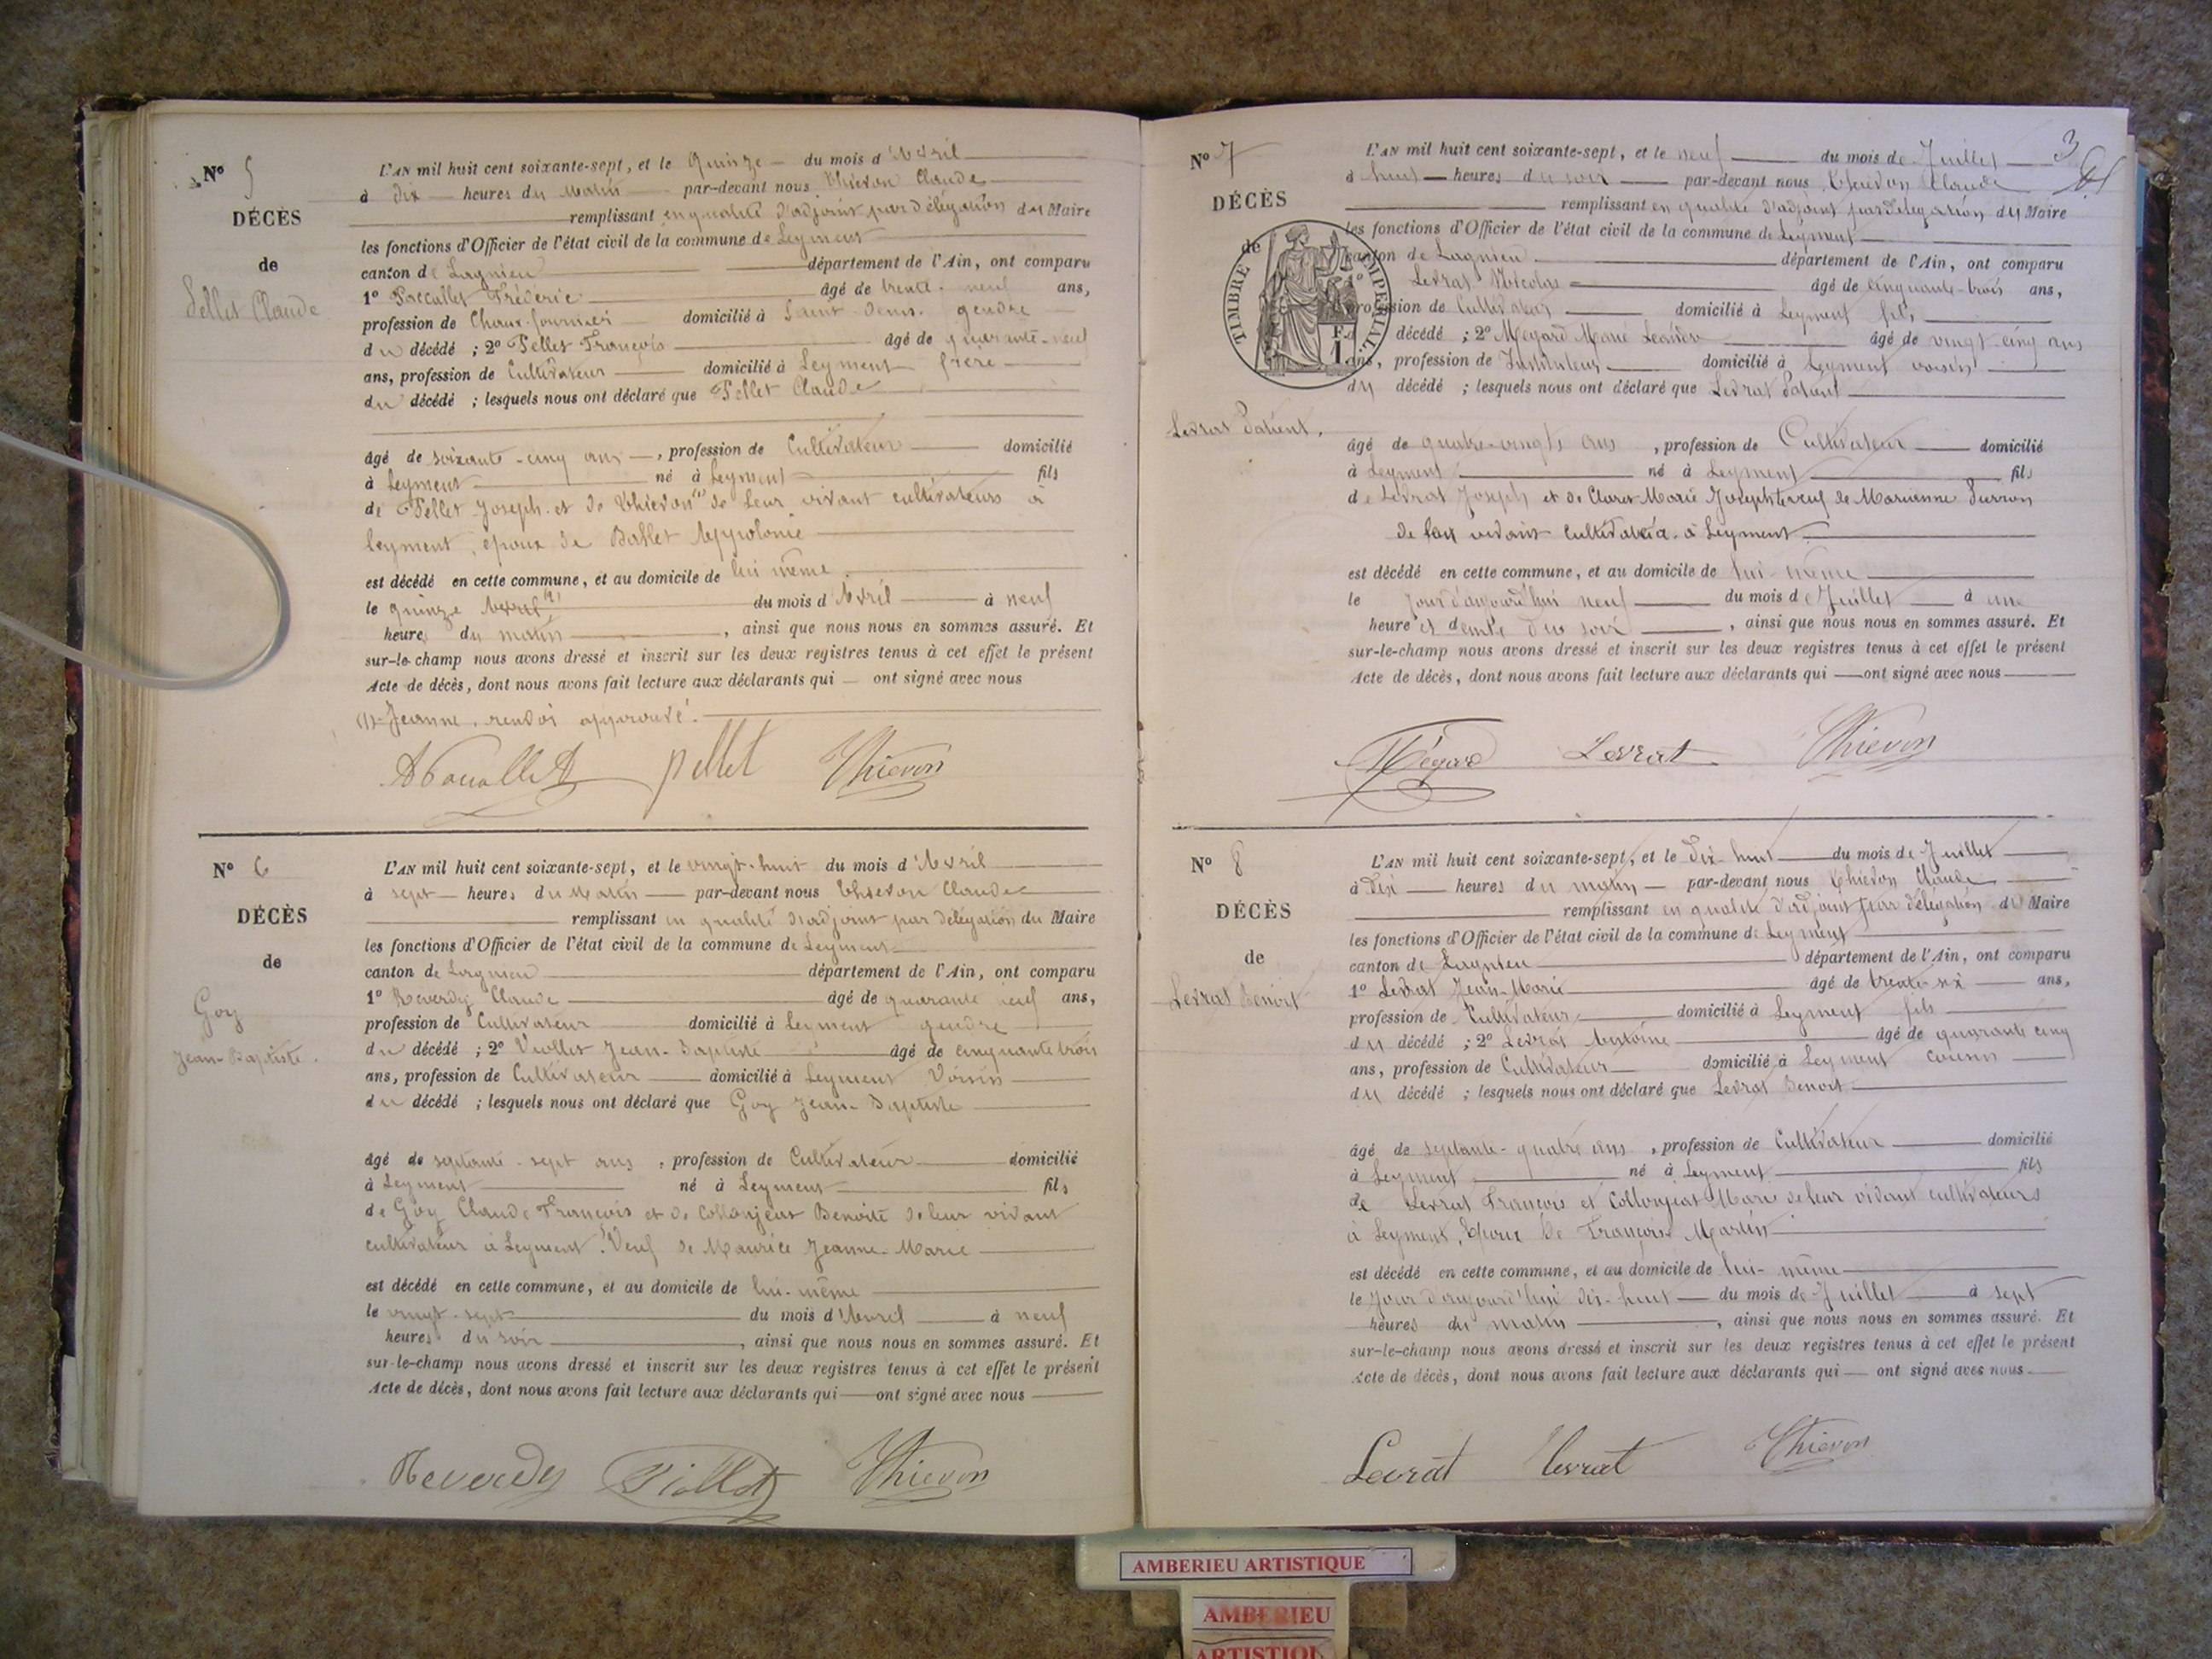 N° 5
DÉCÈS
de
Pellet Claude
L'AN mil huit cent soixante-sept, et le quinze du mois d'Avril
à dix heures du matin par-devant nous Thievon Claude
remplissant en qualité d'adjoint par délégation du Maire
les fonctions d'Officier de l'état civil de la commune de Leyment
canton de Lagnieu département de l'Ain, ont comparu
1° Frédéric âgé de trente-neuf ans,
profession de Chaux-fournier domicilié à Saint-Denis gendre
du décédé ; 2° Pellet François âgé de quarante-neuf
ans, profession de Cultivateur domicilié à Leyment frère
du décédé ; lesquels nous ont déclaré que Pellet Claude
âgé de soixante-cinq ans, profession de Cultivateur domicilié
à Leyment né à Leyment fils
de Pellet Joseph et de Thievon (1) de leur vivant cultivateurs à
Leyment, époux de Ballet Appolonie
est décédé en cette commune, et au domicile de lui même
le quinze Avril du mois d'Avril à neuf
heures du matin, ainsi que nous nous en sommes assuré. Et
sur-le-champ nous avons dressé et inscrit sur les deux registres tenus à cet effet le présent
Acte de décès, dont nous avons fait lecture aux déclarants qui — ont signé avec nous
(1) Jeanne. renvoi approuvé.
pellet Thievon
N° 6
DÉCÈS
de
Goy
Jean-Baptiste.
L'AN mil huit cent soixante-sept, et le vingt-huit du mois d'Avril
à sept heures du Matin par-devant nous Thievon Claude
remplissant en qualité d'adjoint par délégation du Maire
les fonctions d'Officier de l'état civil de la commune de Leyment
canton de Lagnieu département de l'Ain, ont comparu
1° Reverdy Claude âgé de quarante neuf ans,
profession de Cultivateur domicilié à Leyment gendre
du décédé ; 2° Viollet Jean-Baptiste âgé de cinquante trois
ans, profession de Cultivateur domicilié à Leyment Voisin
du décédé ; lesquels nous ont déclaré que Goy Jean-Baptiste
âgé de septante-sept ans, profession de Cultivateur domicilié
à Leyment né à Leyment fils
de Goy Claude François et de Collonjeat Benoite de leur vivant
cultivateur à Leyment. Veuf de Maurice Jeanne-Marie
est décédé en cette commune, et au domicile de lui-même
le vingt-sept du mois d'Avril à neuf
heures du soir, ainsi que nous nous en sommes assuré. Et
sur-le-champ nous avons dressé et inscrit sur les deux registres tenus à cet effet le présent
Acte de décès, dont nous avons fait lecture aux déclarants qui — ont signé avec nous
Reverdy Viollet Thievon
3
N° 7
DÉCÈS
de
TIMBRE IMPERIAL
1 F.
Levrat Patient.
L'AN mil huit cent soixante-sept, et le neuf du mois de Juillet
à huit heures du soir par-devant nous Thievon Claude
remplissant en qualité d'adjoint par délégation du Maire
les fonctions d'Officier de l'état civil de la commune de Leyment
canton de Lagnieu département de l'Ain, ont comparu
1° Levrat Nicolas âgé de cinquante-trois ans,
profession de Cultivateur domicilié à Leyment fils
décédé ; 2° Mégard Marie Léandre âgé de vingt-cinq ans
ans, profession de Instituteur domicilié à Leyment voisin
du décédé ; lesquels nous ont déclaré que Levrat Patient
âgé de quatre-vingts ans, profession de Cultivateur domicilié
à Leyment né à Leyment fils
de Levrat Joseph et de Claret Marie Josephte veuf de Marianne
de leur vivant cultivateurs à Leyment
est décédé en cette commune, et au domicile de lui-même
le jour d'aujourd'hui neuf du mois de Juillet à une
heure et demie du soir, ainsi que nous nous en sommes assuré. Et
sur-le-champ nous avons dressé et inscrit sur les deux registres tenus à cet effet le présent
Acte de décès, dont nous avons fait lecture aux déclarants qui — ont signé avec nous
Mégard Levrat Thievon
N° 8
DÉCÈS
de
Levrat Benoit
L'AN mil huit cent soixante-sept, et le dix-huit du mois de Juillet
à dix heures du matin par-devant nous Thievon Claude
remplissant en qualité d'adjoint par délégation du Maire
les fonctions d'Officier de l'état civil de la commune de Leyment
canton de Lagnieu département de l'Ain, ont comparu
1° Levrat Jean-Marie âgé de trente-six ans,
profession de Cultivateur domicilié à Leyment fils
du décédé ; 2° Levrat Antoine âgé de quarante cinq
ans, profession de Cultivateur domicilié à Leyment cousin
du décédé ; lesquels nous ont déclaré que Levrat Benoit
âgé de septante-quatre ans, profession de Cultivateur domicilié
à Leyment né à Leyment fils
de Levrat François et Collonjeat Marie de leur vivant cultivateurs
à Leyment, Epoux de Françoise Martin
est décédé en cette commune, et au domicile de lui-même
le jour d'aujourd'hui dix-huit du mois de Juillet à sept
heures du matin, ainsi que nous nous en sommes assuré. Et
sur-le-champ nous avons dressé et inscrit sur les deux registres tenus à cet effet le présent
Acte de décès, dont nous avons fait lecture aux déclarants qui — ont signé avec nous
Levrat levrat Thievon
AMBERIEU ARTISTIQUE
AMBERIEU
ARTISTIQU